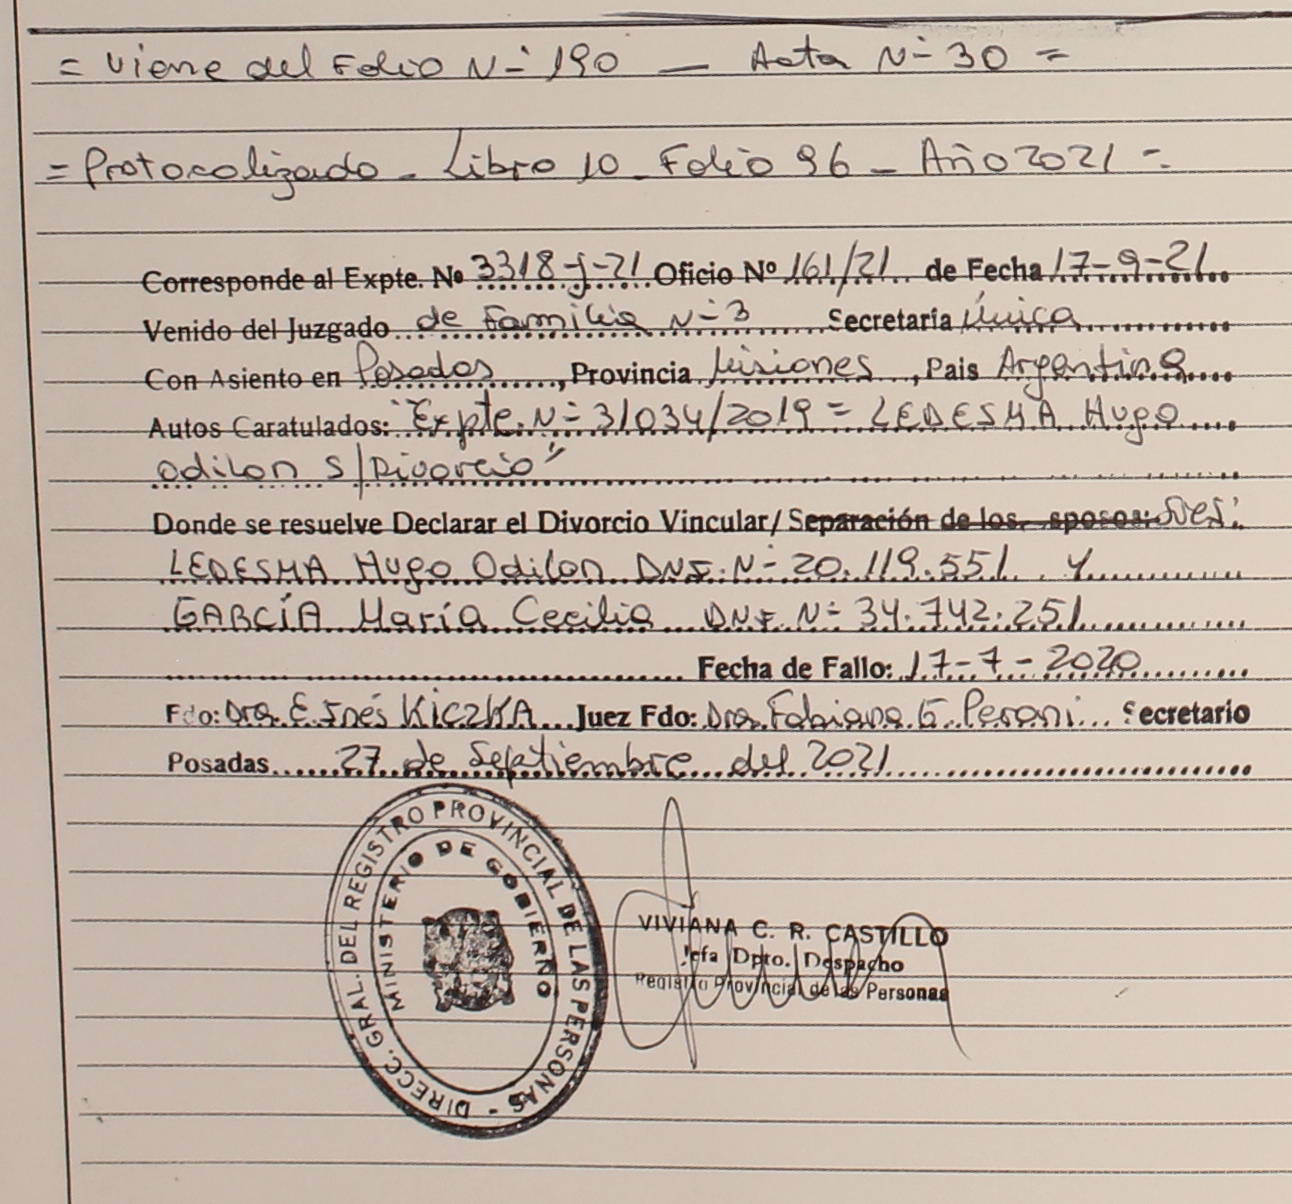 = Viene del Folio Nº 190 — Acta Nº 30 =
= Protocolizado - Libro 10 - Folio 96 - Año 2021 =
Corresponde al Expte. Nº 3318-J-21 Oficio Nº 161/21 de Fecha 17-9-21
Venido del Juzgado de Familia Nº 3 Secretaría Única
Con Asiento en Posadas, Provincia Misiones, Pais Argentina
Autos Caratulados: "Expte. Nº 31034/2019 = LEDESMA Hugo
Odilon S/Divorcio"
Donde se resuelve Declarar el Divorcio Vincular/ Separación de los sposos: Sres:
LEDESMA Hugo Odilon DNI. Nº 20.119.551 y
GARCÍA María Cecilia DNI. Nº 34.742.251
Fecha de Fallo: 17-7-2020
Fdo: Dra. E. Inés KICZKA Juez Fdo: Dra. Fabiana G. Perani Secretario
Posadas 27 de Septiembre del 2021
DIRECC. GRAL. DEL REGISTRO PROVINCIAL DE LAS PERSONAS -
MINISTERIO DE GOBIERNO
VIVIANA C. R. CASTILLO
Jefa Dpto. Despacho
Registro Provincial de las Personas